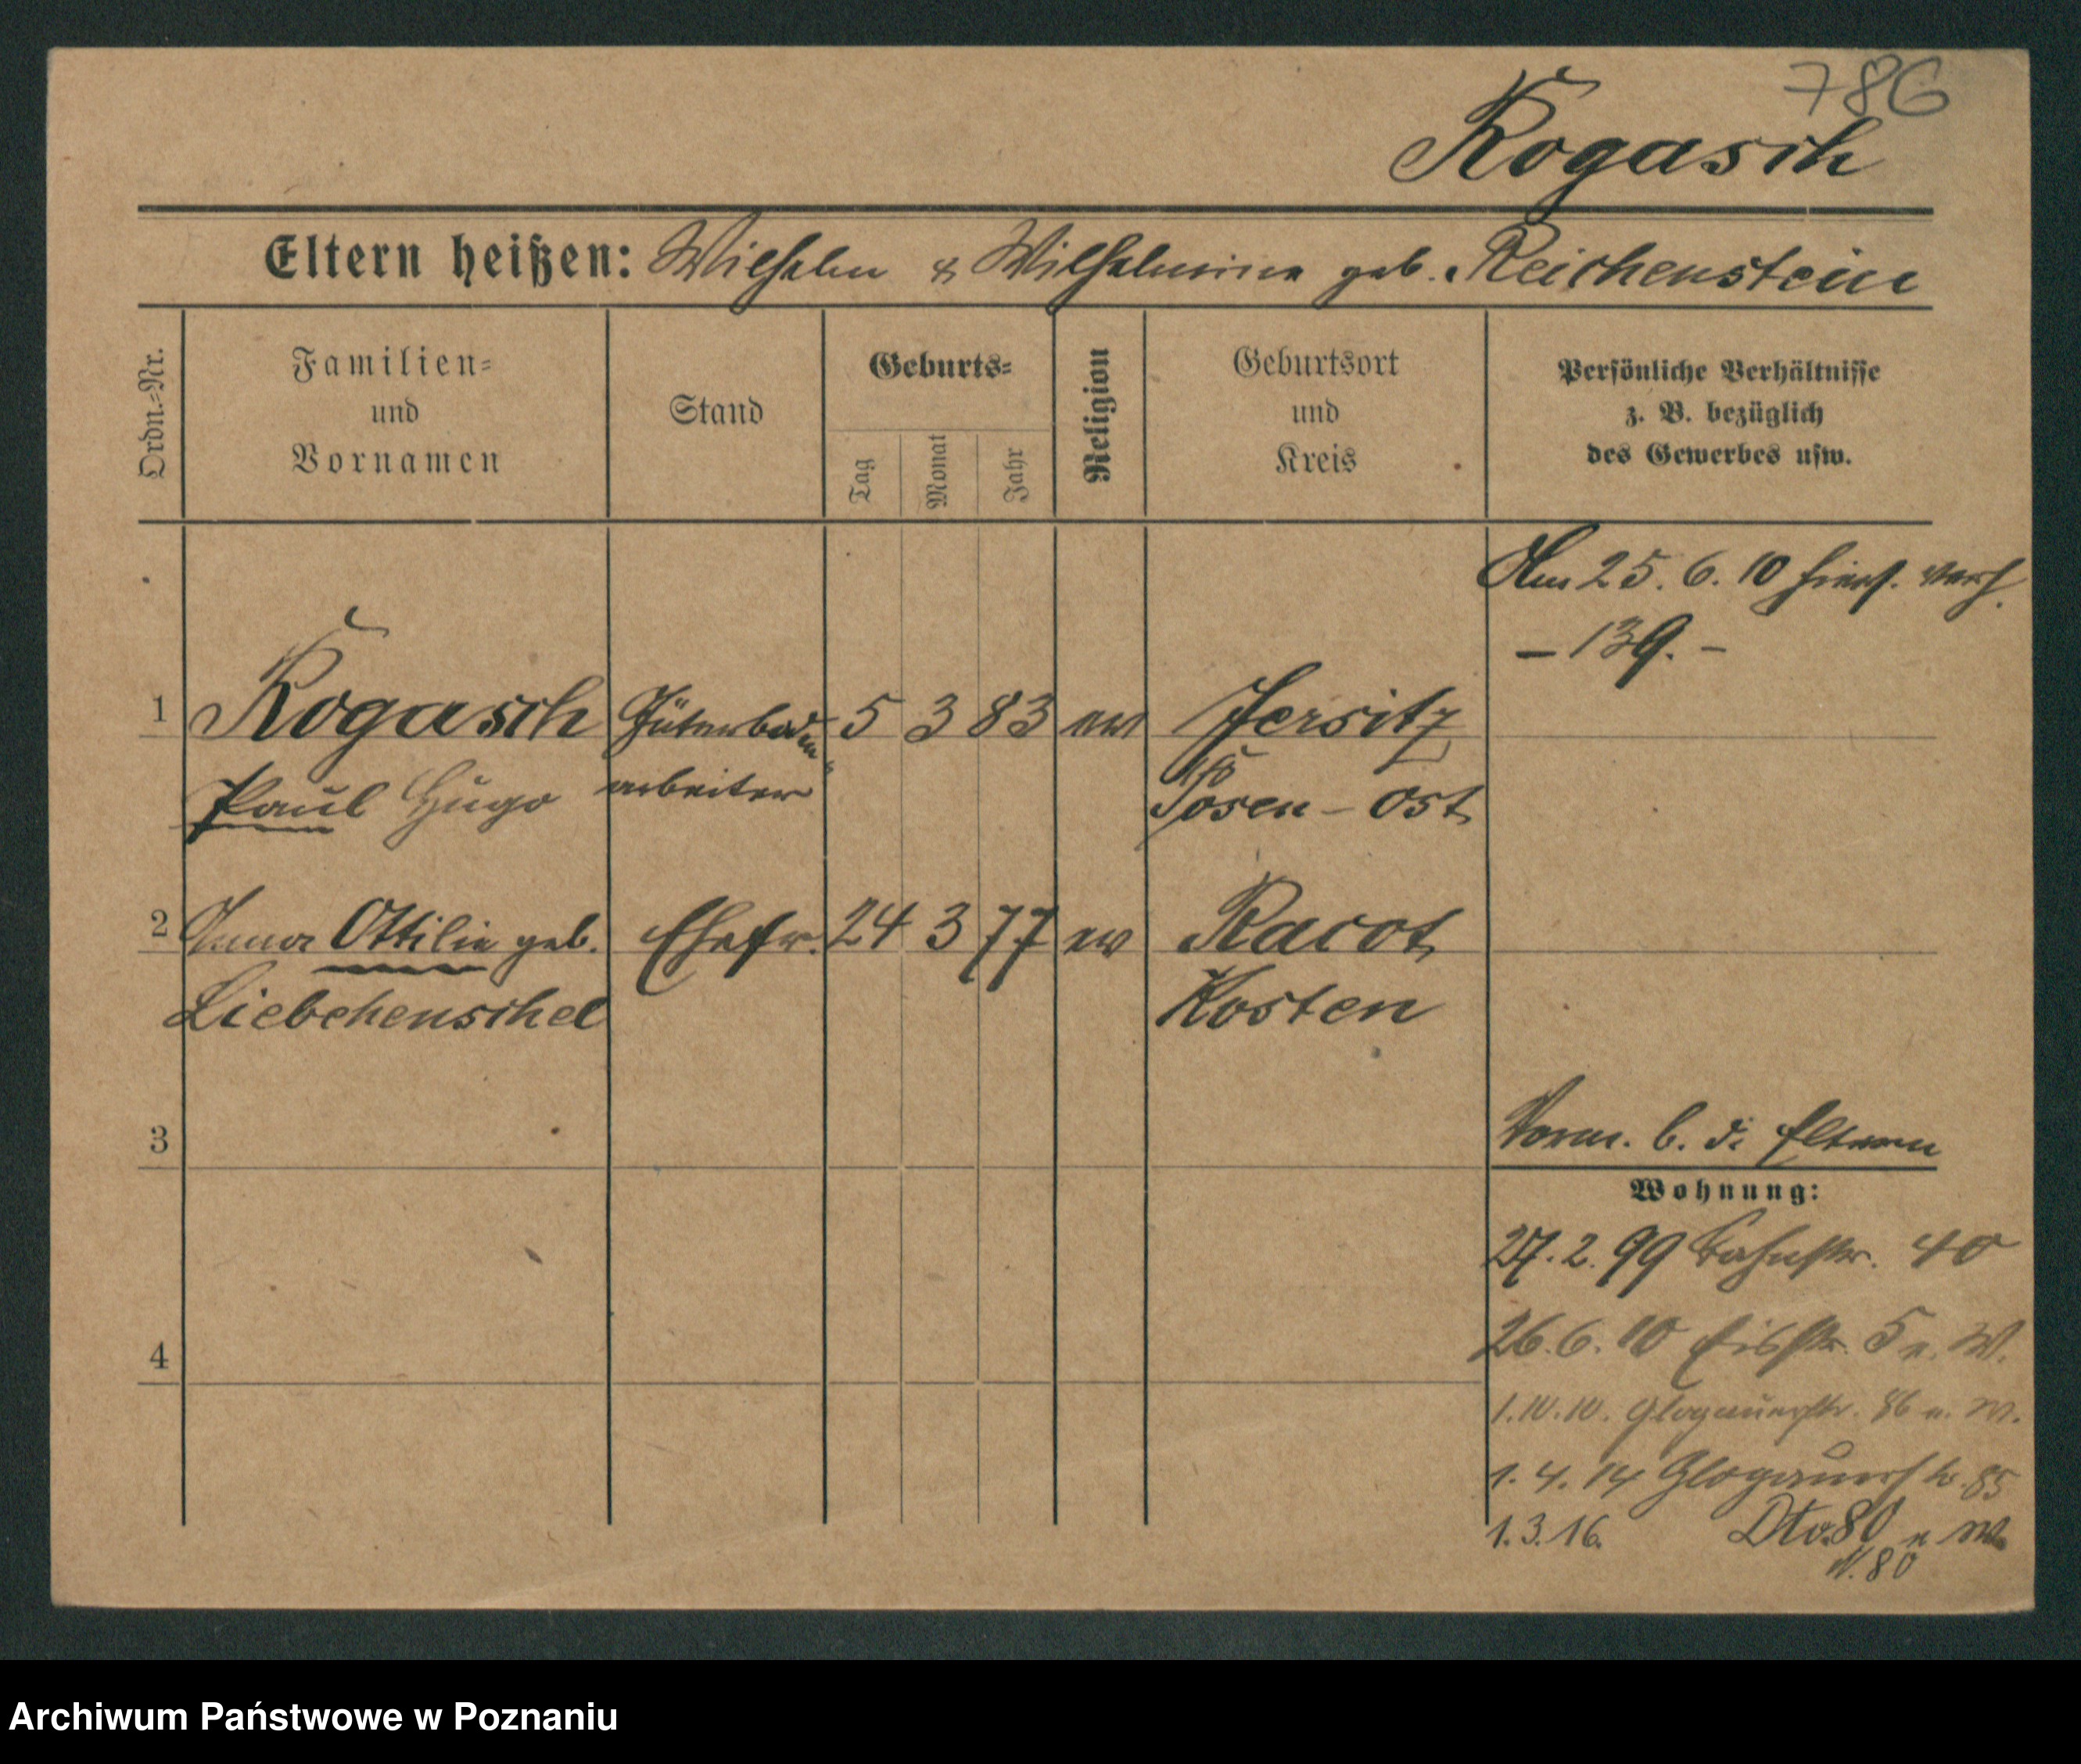 786
Rogasch
Eltern heißen: Wilhelm & Wilhelmine geb. Reichenstein
Ordn.=Nr.
Familien=
und
Vornamen
Stand
Geburts=
Tag
Monat
Jahr
Religion
Geburtsort
und
Kreis
Persönliche Verhältnisse
z. B. bezüglich
des Gewerbes usw.
Am 25. 6. 10 hiers. verh.
– 139. –
1 Rogasch Güterboden 5 3 83 ev Jersitz
Paul Hugo arbeiter Posen – Ost
2 Anna Ottilie geb. Ehefr. 24 3 77 ev Racot
Liebchenschel Kosten
3
Vorm. b. d. Eltern
Wohnung:
27. 2. 99 Bahnstr. 40
4
26. 6. 10 Eisstr. 5 n. W.
1. 10. 10. Glogauerstr. 86 n. W.
1. 4. 14 Glogauerstr. 85
1. 3. 16. Dto. 80 n W.
N. 80
Archiwum Państwowe w Poznaniu